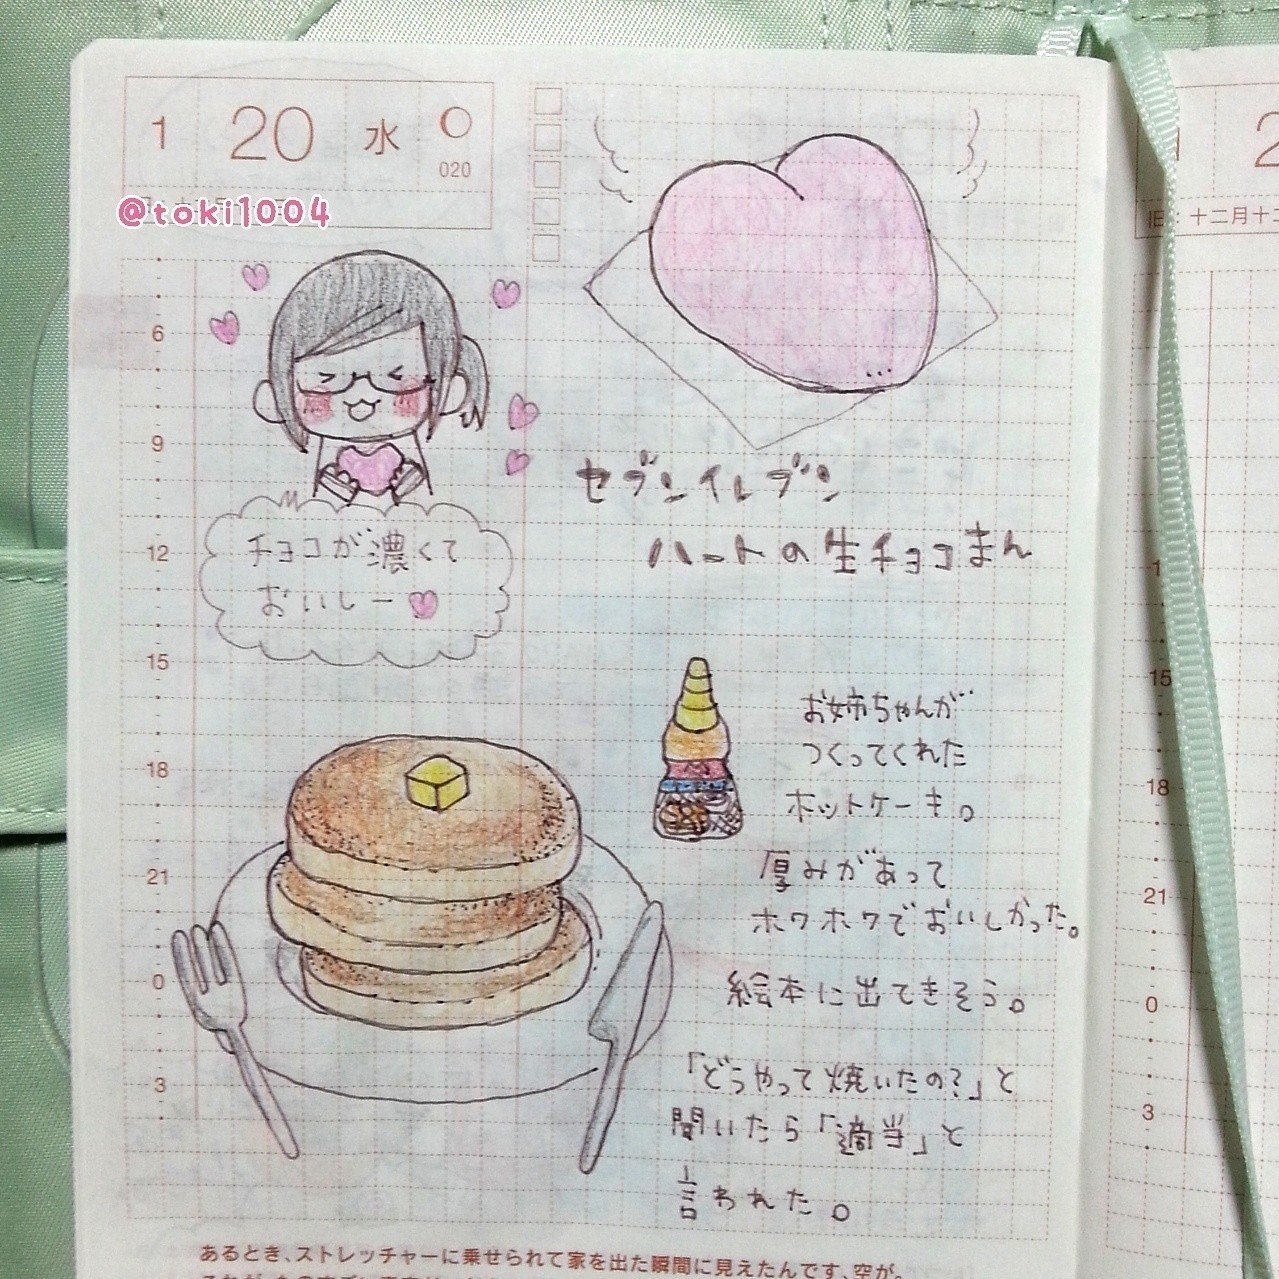 1 20 水
020
@toki1004
6
9
12
15
18
21
0
3
チョコが濃くて
おいしー
セブンイレブン
ハートの生チョコまん
お姉ちゃんが
つくってくれた
ホットケーキ。
厚みがあって
ホワホワでおいしかった。
絵本に出てきそう。
「どうやって焼いたの?」と
聞いたら「適当」と
言われた。
あるとき、ストレッチャーに乗せられて家を出た瞬間に見えたんです、空が。
2
旧:十二月十二
15
18
21
0
3